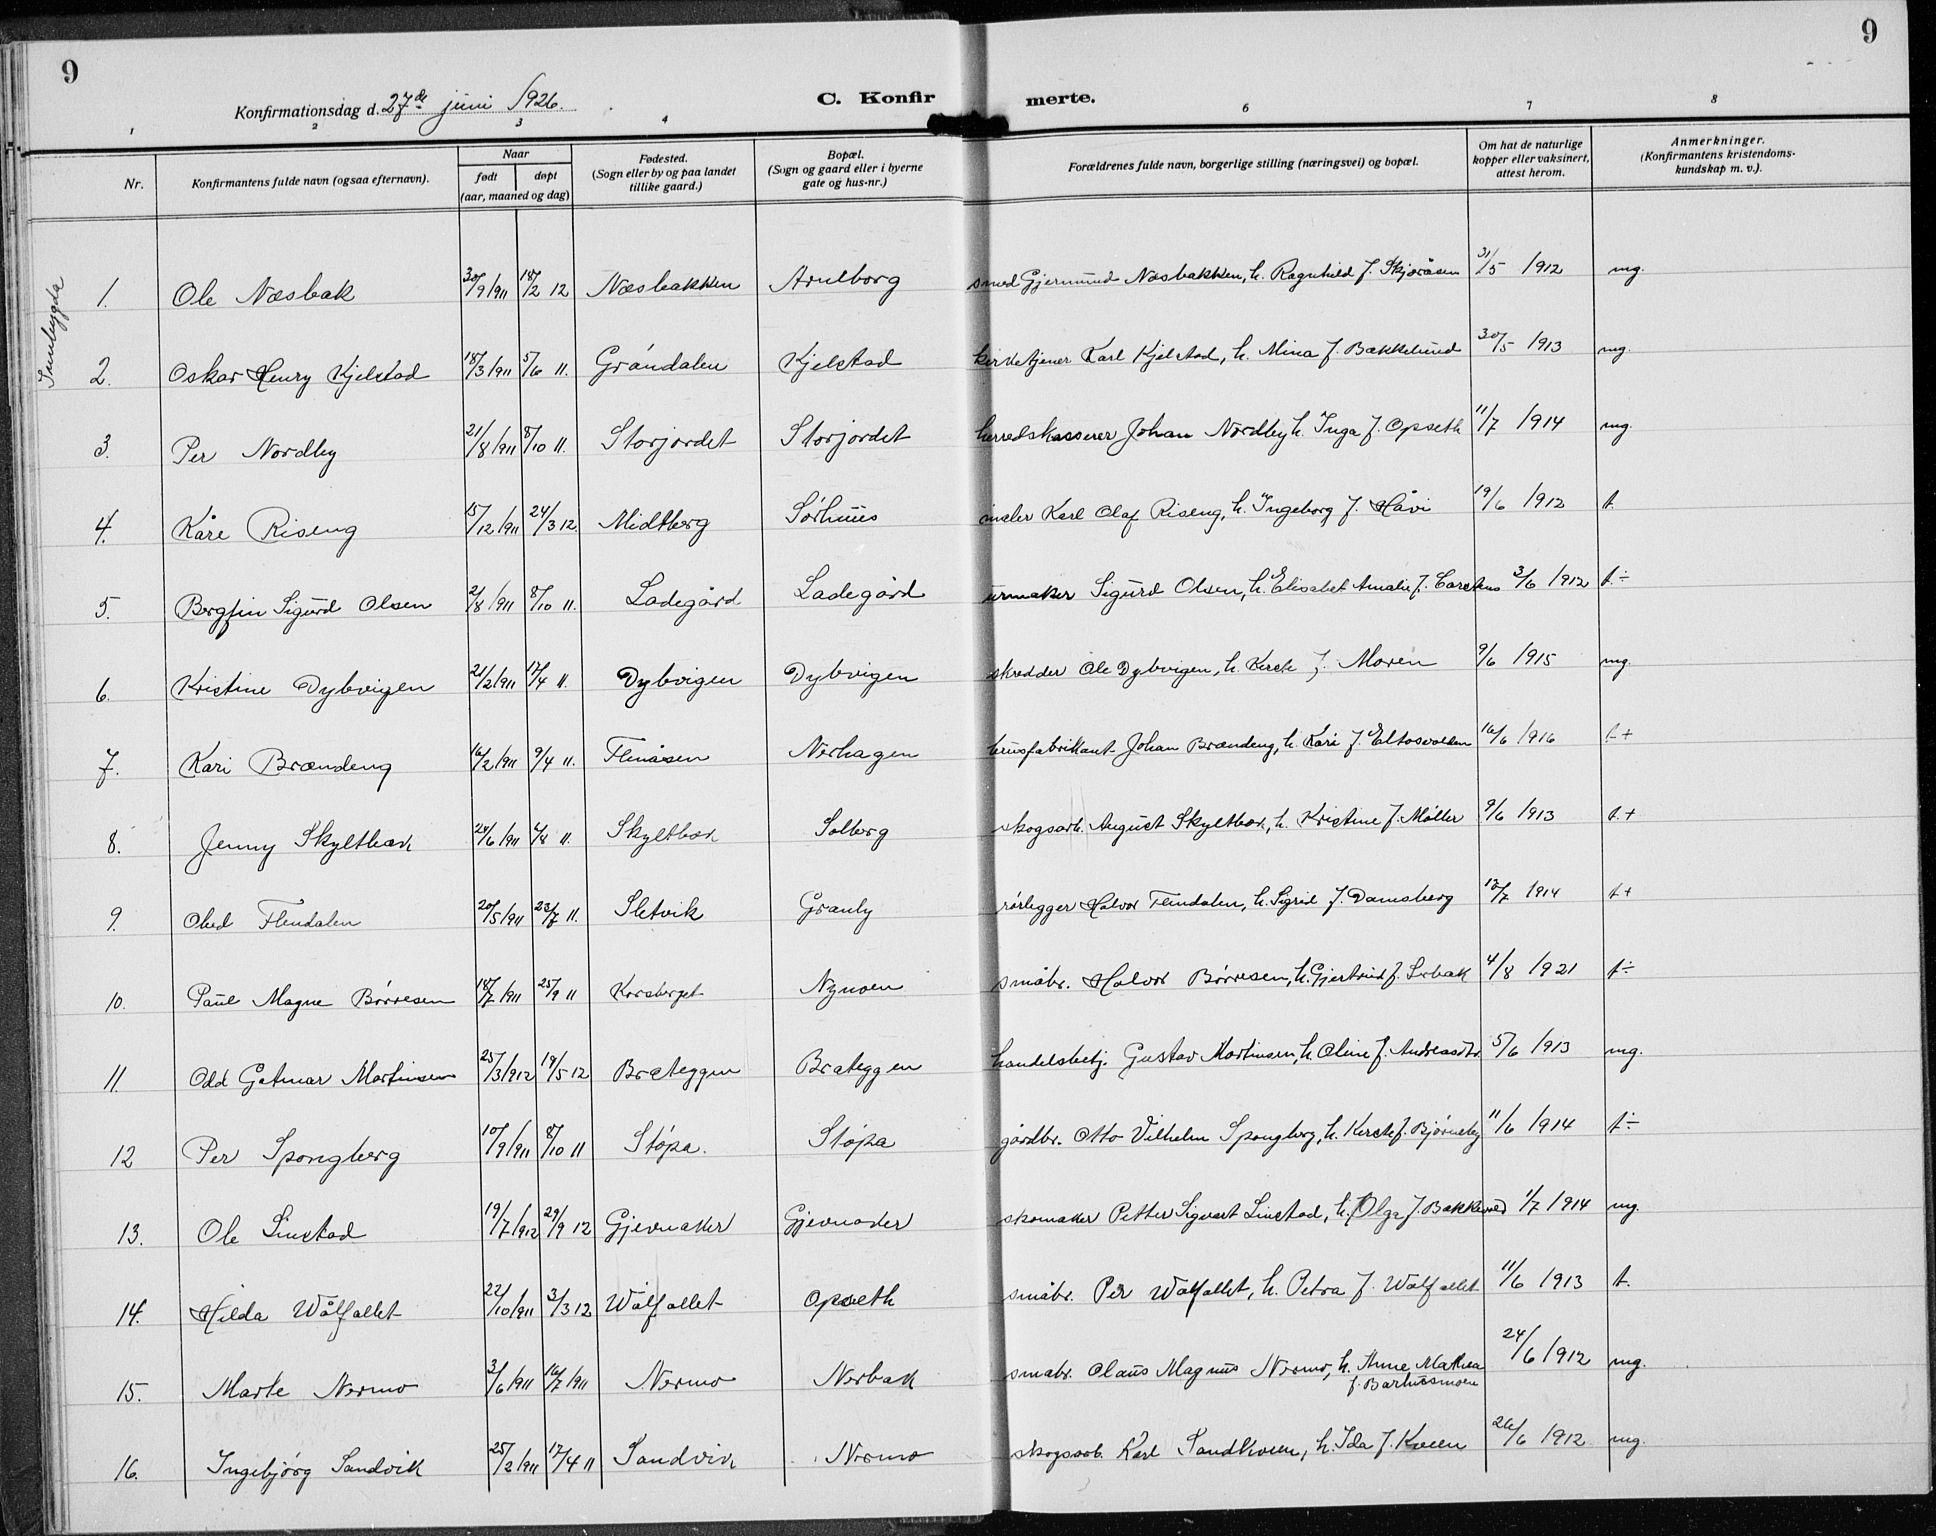 9
9
Konfirmationsdag d. 27de juni 1926.
C. Konfirmerte.
1 2 3 4 6 7 8
Nr.
Konfirmantens fulde navn (ogsaa efternavn).
Naar
født
døpt
(aar, maaned og dag)
Fødested.
(Sogn eller by og paa landet
tillike gaard.)
Bopæl.
(Sogn og gaard eller i byerne
gate og hus-nr.)
Forældrenes fulde navn, borgerlige stilling (næringsvei) og bopæl.
Om hat de naturlige
kopper eller vaksinert,
attest herom.
Anmerkninger.
(Konfirmantens kristendoms-
kundskap m. v.).
1. Ole Næsbak 30/9 1911 18/2 12 Næsbakken Arnlborg smed Gjermund Næsbakken, h. Ragnhild f. Skjæråsen 31/5 1912 mg.
2. Oskar Henry Kjelstad 18/3 1911 5/6 11. Gråndalen Kjelstad kirketjener Karl Kjelstad, h. Mina f. Bækkelund 30/5 1913 mg.
3. Per Nordby 21/8 1911 8/10 11. Storjordet Storjordet herredskasserer Johan Nordby h. Inga f. Opseth 11/7 1914 mg.
4. Kåre Riseng 15/12 1911 24/3 12. Midtberg Sørhuus maler Karl Olaf Riseng, h. Ingeborg f. Håvi 19/6 1912 t.
5. Bergfin Sigurd Olsen 2/8 1911 8/10 11. Ladegård Ladegård urmaker Sigurd Olsen, h. Elisabet Amalie f. Carstens 3/6 1912 t.÷
6. Kristine Dybvigen 21/2 1911 17/4 11. Dybvigen Dybvigen skredder Ole Dybvigen, h. Kersti f. Moren 9/6 1915 mg.
7. Kari Brændeng 16/2 1911 9/4 11. Flenåsen Nerhagen brusfabrikant Johan Brændeng, h. Kari f. 16/6 1916 t.+
8. Jenny Skyltbæk 24/6 1911 /8 11. Skyltbæk Solberg skogsarb. August Skyltbæk, h. Kristine f. Møller 9/6 1913 t.+
9. Obed Flendalen 20/5 1911 23/7 11. Sletvik Granly rørlegger Halvor Flendalen, h. Sigrid f. Damsberg 12/7 1914 t+
10. Paul Magne Børresen 18/7 1911 25/9 11 Korsberget Nymoen småbr. Halvor Børresen, h. Gjertrud f. Sorbak 4/8 1921 t÷
11. Odd Gotmar Martinsen 25/3 1912 19/5 12 Brateggen Brateggen handelsbetj. Gustav Martinsen, h. Oline f. Andreasdtr. 5/6 1913 mg.
12 Per Spongberg 10/9 1911 8/10 11 Støpa. Støpa gårdbr. Otto Vilhelm Spongberg, h. Kersti f. Bjørneby 11/6 1914 t÷
13. Ole Linstad 19/7 1912 29/9 12 Gjevnaker Gjevnaker skomaker Petter Sigvart Linstad, h. Olga f. Bakkevold 1/7 1914 mg.
14. Hilda Wålfallet 22/10 1911 3/3 12 Wålfallet Opseth småbr. Per Wålfallet, h. Petra f. Wålfallet 11/6 1913 t.
15. Marte Nermo 3/6 1911 16/7 1911 Nermo Nerbak småbr. Claus Magnus Nermo, h. Anne Mathea 24/6 1912 mg.
f. Barhusmoen
16. Ingebjørg Sandvik 25/2 1911 17/4 11 Sandvik Nermo skogsarb. Karl Sandkveen, h. Ida f. Kveen 26/6 1912 mg.